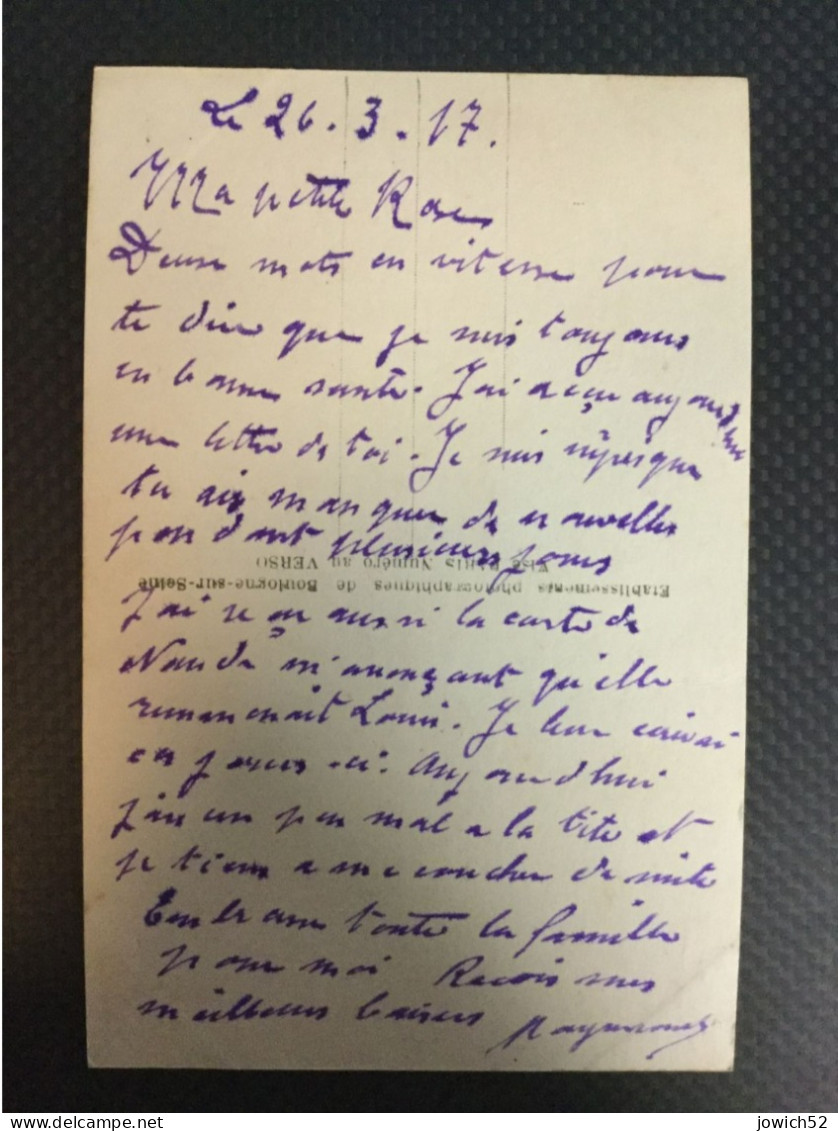 Le 26.3.17.
Ma petite Rose
Deux mots en vitesse pour
te dire que je suis toujours
en bonne santé. J'ai reçu aujourd'hui
une lettre de toi. Je vois que
tu as manquer de nouvelles
pendant plusieurs jours
Etablissements photographiques de Boulogne-sur-Seine
Visé PARIS Numéro au VERSO
J'ai reçu aussi la carte de
Nande m'anonçant qu'elle
rammenait Louis. Je leur
ces jours-ci. Aujourd'hui
j'ai un peu mal a la tête et
je tiens a me coucher de suite
Embrasse toute la famille
pour moi Recois mes
meilleurs baisers Raymond
delcampe.net
jowich52